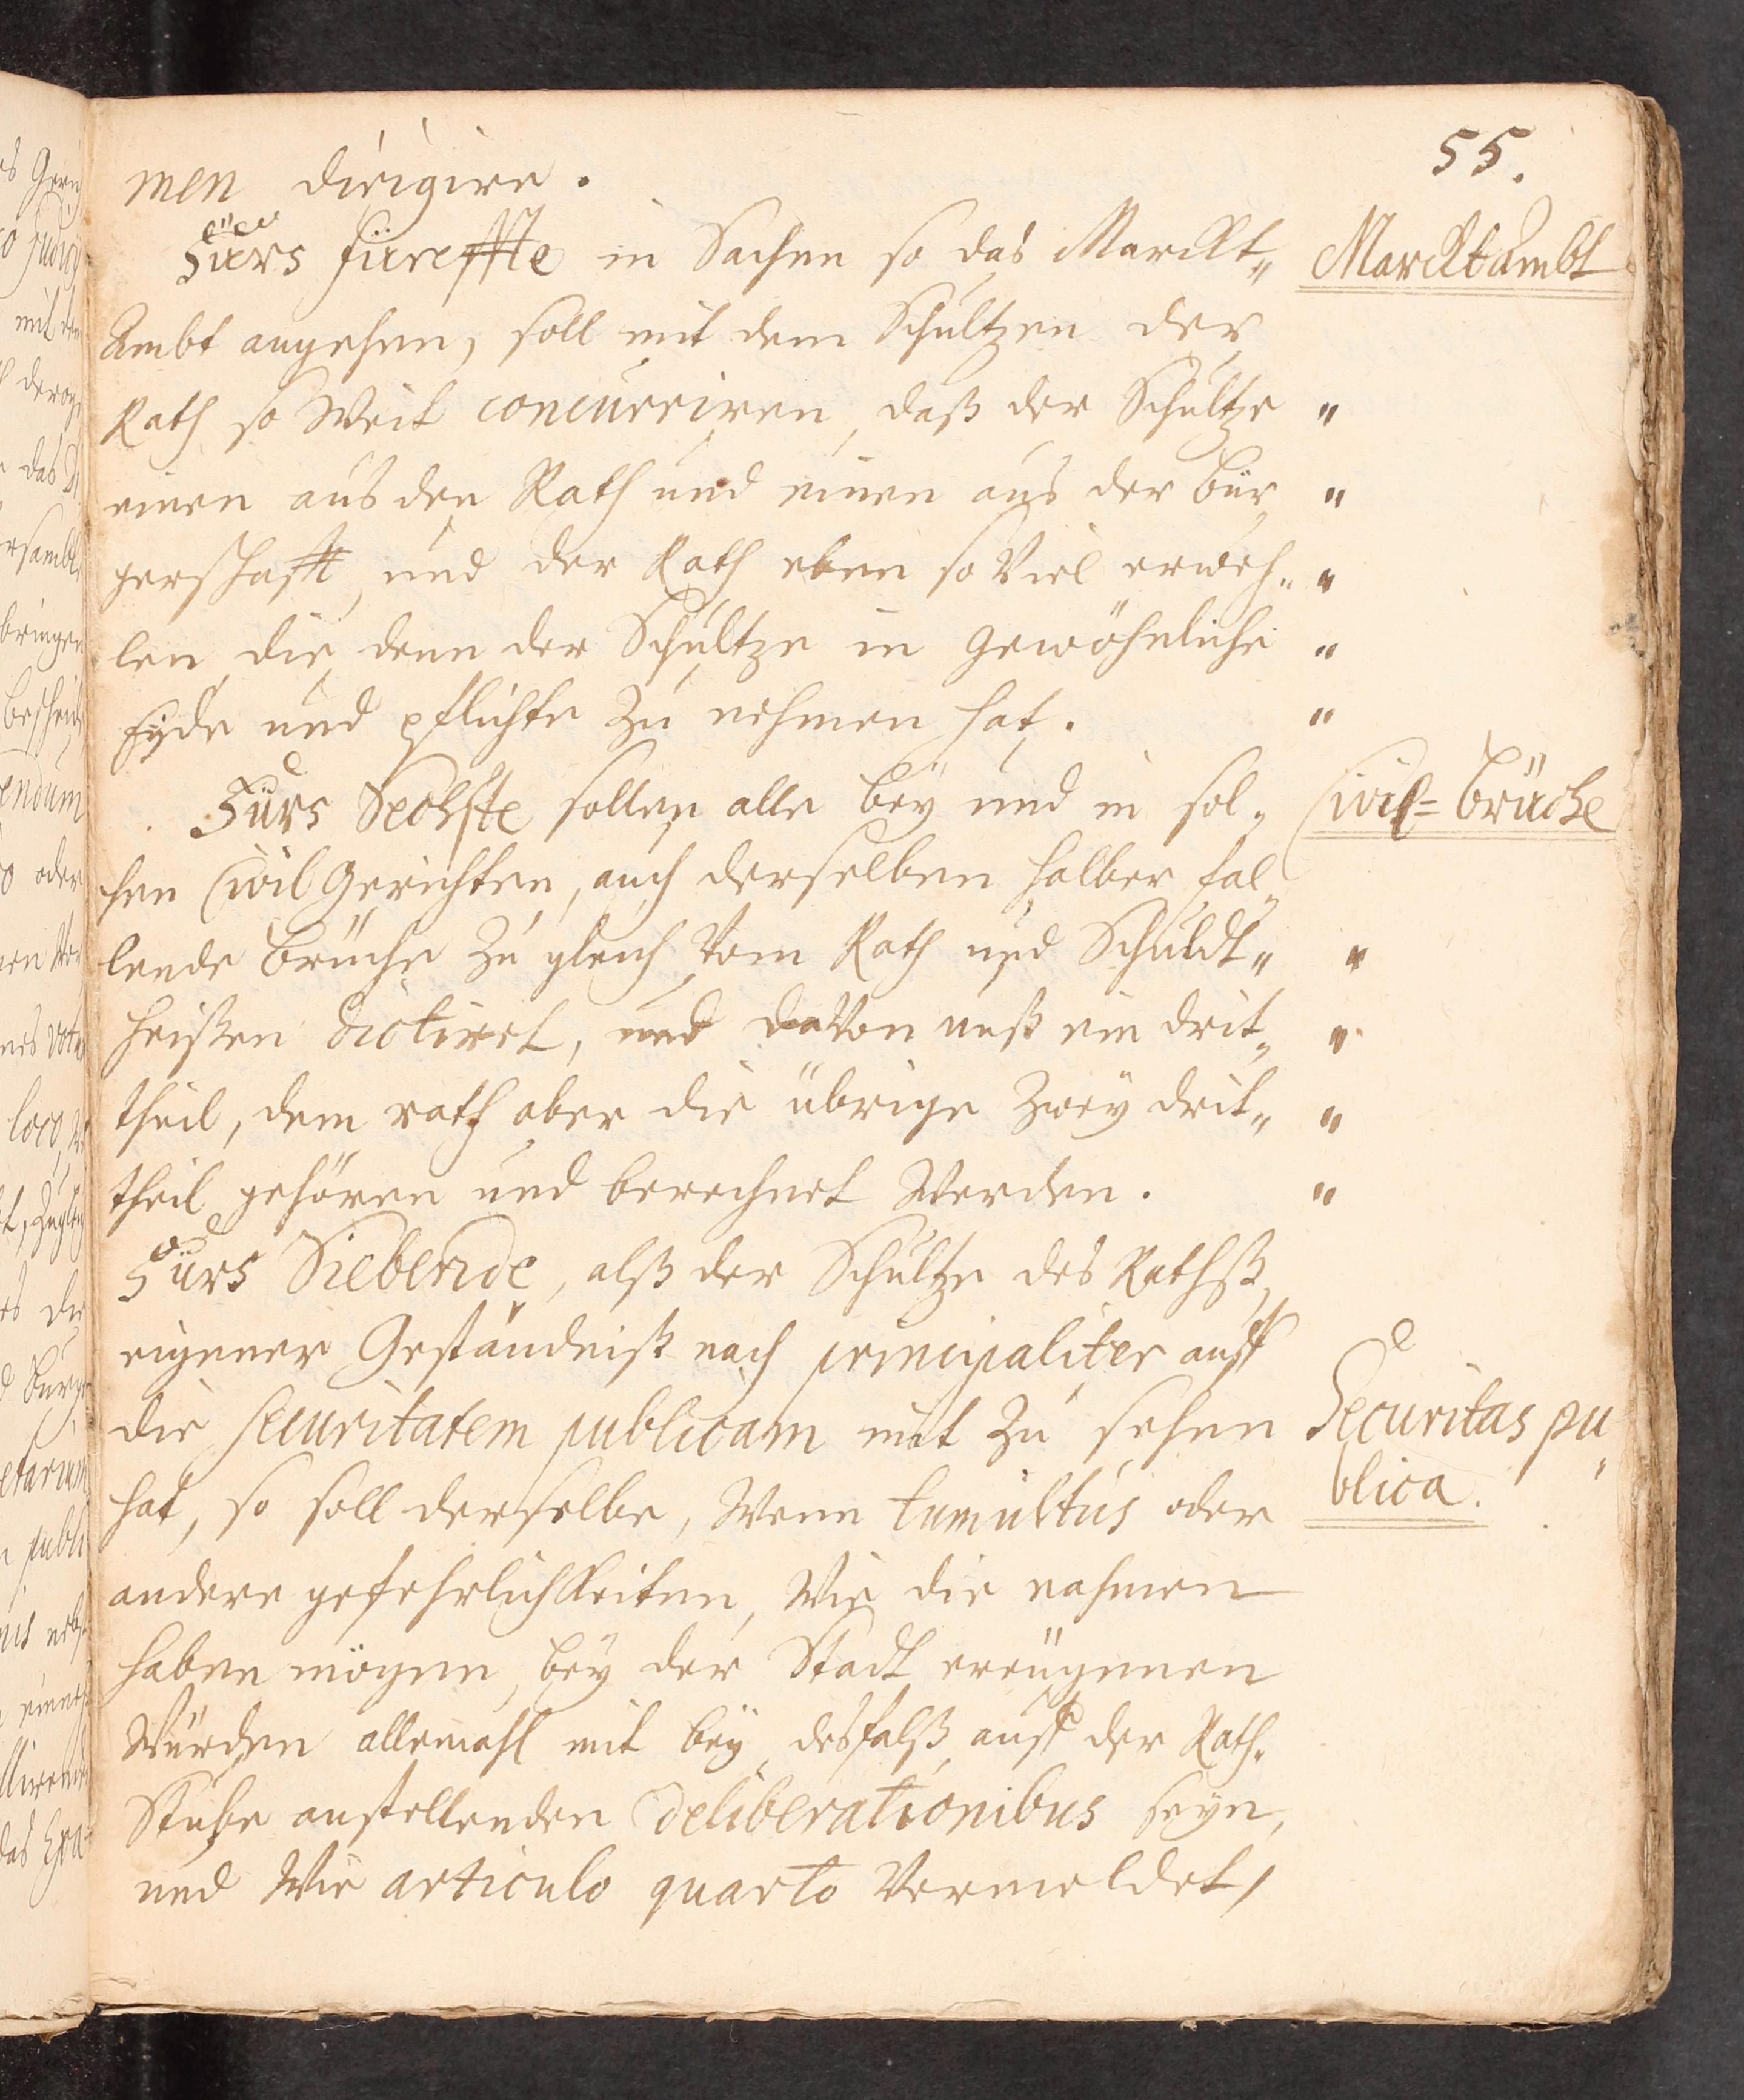 55.
men dirigire.
Fürs fünffte in Sachen so das Marckt„ Marcktambt
Ambt angehen, soll mit dem Schultzen der
Rath so Weit concurriren, daß der Schultze "
einen aus den Rath und einen aus der bür "
gerschafft, und der Rath eben so Viel erweh„ "
len, die denn der Schultze in gewöhnliche "
Eyde und pflichte Zu nehmen hat. "
Fürs Sechste sollen alle bey und in sol„ Civil=brüche
chen Civil Gerichten, auch derselben halber fal„
lende brüche Zu gleich Vom Rath und Schuldt„ "
heißen dictiret, und daVon unß ein drit„ "
theil, dem rath aber die übrige Zwey drit„ "
theil gehören und berechnet Werden. "
Fürs Siebende, alß der Schultze des Rathß
eigener Geständniß nach principaliter auff
die securitatem publicam mit Zu sehen Securitas pu„
hat, so soll derselbe, Wenn tumultus oder blica.
andere gefehrlichkeiten, Wie die nahmen
haben mögen, bey der Stadt ereügenen
Würden allemahl mit bey desfalß auff der Rath„
Stube anstellenden deliberationibus seyn,
und Wie articulo quarto Vermeldet,